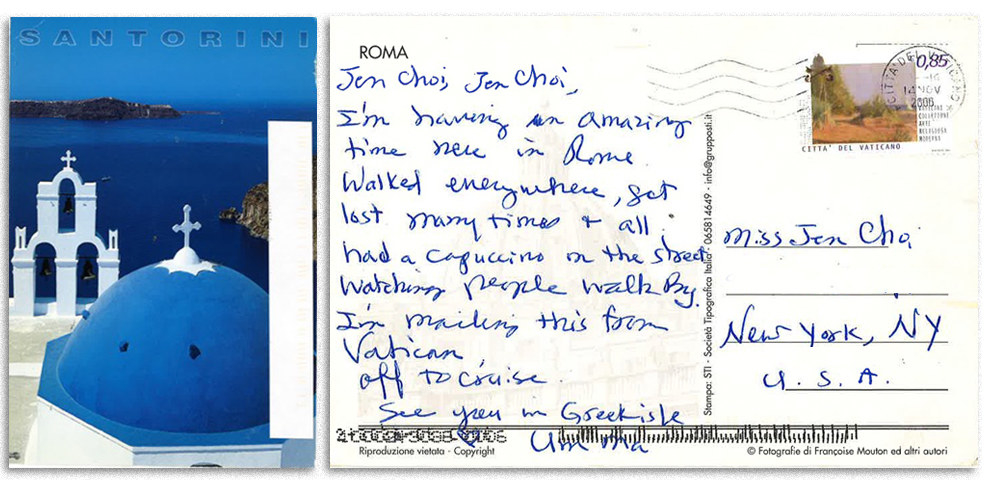 SANTORINI
ROMA
Jen Choi, Jen Choi,
I'm having an amazing
time here in Rome.
Walked everywhere, get
lost many times & all.
had a capuccino on the street
Watching people walk By.
I'm mailing this from
Vatican,
off to cruise.
See you in Greek isle
Um ma
Riproduzione vietata - Copyright
Stampa: STI - Società Tipografica Italia - 065814649 - info@grupposti.it
0,85
CITTA' DEL VATICANO
14 NOV
2006
COLLEZIONE
ARTE
RELIGIOSA
MODERNA
CITTA' DEL VATICANO
Miss Jen Choi
New York, NY
U. S. A.
© Fotografie di Françoise Mouton ed altri autori